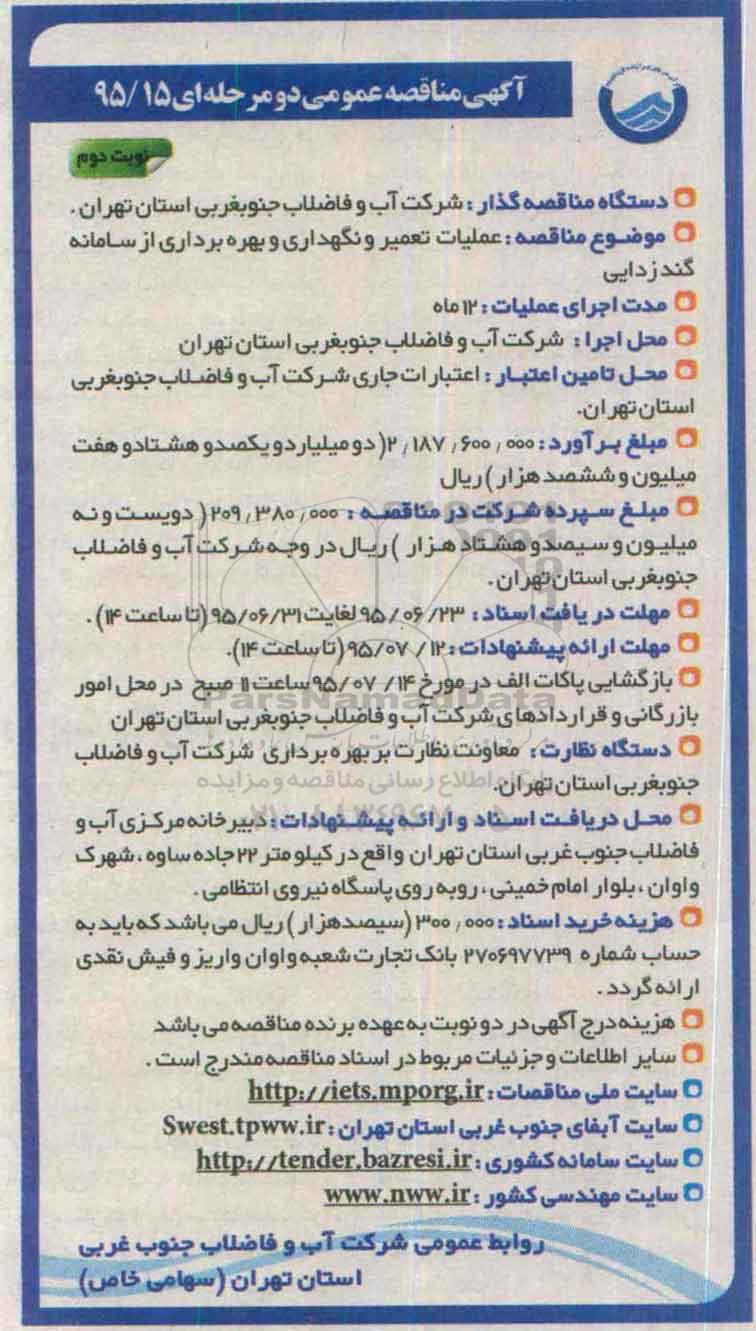 آگهی مناقصه عمومی دو مرحله ای ۹۵/۱۵
نوبت دوم
دستگاه مناقصه گذار : شرکت آب و فاضلاب جنوبغربی استان تهران .
موضوع مناقصه : عملیات تعمیر و نگهداری و بهره برداری از سامانه
گندزدایی
مدت اجرای عملیات : ۱۲ ماه
محل اجرا : شرکت آب و فاضلاب جنوبغربی استان تهران
محل تامین اعتبار : اعتبارات جاری شرکت آب و فاضلاب جنوبغربی
استان تهران.
مبلغ برآورد : ۲,۱۸۷,۶۰۰,۰۰۰( دو میلیارد و یکصدو هشتادو هفت
میلیون و ششصد هزار ) ریال
مبلغ سپرده شرکت در مناقصه : ۲۰۹,۳۸۰,۰۰۰ ( دویست و نه
میلیون و سیصدو هشتاد هزار ) ریال در وجه شرکت آب و فاضلاب
جنوبغربی استان تهران .
مهلت دریافت اسناد : ۹۵/۰۶/۲۳ لغایت ۹۵/۰۶/۳۱ (تا ساعت ۱۴) .
مهلت ارائه پیشنهادات : ۹۵/۰۷/۱۲ (تا ساعت ۱۴).
بازگشایی پاکات الف در مورخ ۹۵/۰۷/۱۴ ساعت ۱۱ صبح در محل امور
بازرگانی و قراردادهای شرکت آب و فاضلاب جنوبغربی استان تهران
دستگاه نظارت : معاونت نظارت بر بهره برداری شرکت آب و فاضلاب
جنوبغربی استان تهران.
محل دریافت اسناد و ارائه پیشنهادات : دبیرخانه مرکزی آب و
فاضلاب جنوب غربی استان تهران واقع در کیلو متر ۲۲ جاده ساوه ، شهرک
واوان ، بلوار امام خمینی ، روبه روی پاسگاه نیروی انتظامی .
هزینه خرید اسناد : ۳۰۰,۰۰۰ (سیصدهزار ) ریال می باشد که باید به
حساب شماره ۲۷۰۶۹۷۷۳۹ بانک تجارت شعبه واوان واریز و فیش نقدی
ارائه گردد .
هزینه درج آگهی در دو نوبت به عهده برنده مناقصه می باشد
سایر اطلاعات و جزئیات مربوط در اسناد مناقصه مندرج است .
سایت ملی مناقصات : http://iets.mporg.ir
سایت آبفای جنوب غربی استان تهران : Swest.tpww.ir
سایت سامانه کشوری : http://tender.bazresi.ir
سایت مهندسی کشور : www.nww.ir
روابط عمومی شرکت آب و فاضلاب جنوب غربی
استان تهران (سهامی خاص)
ParsNamadData
پایگاه اطلاع رسانی مناقصه و مزایده